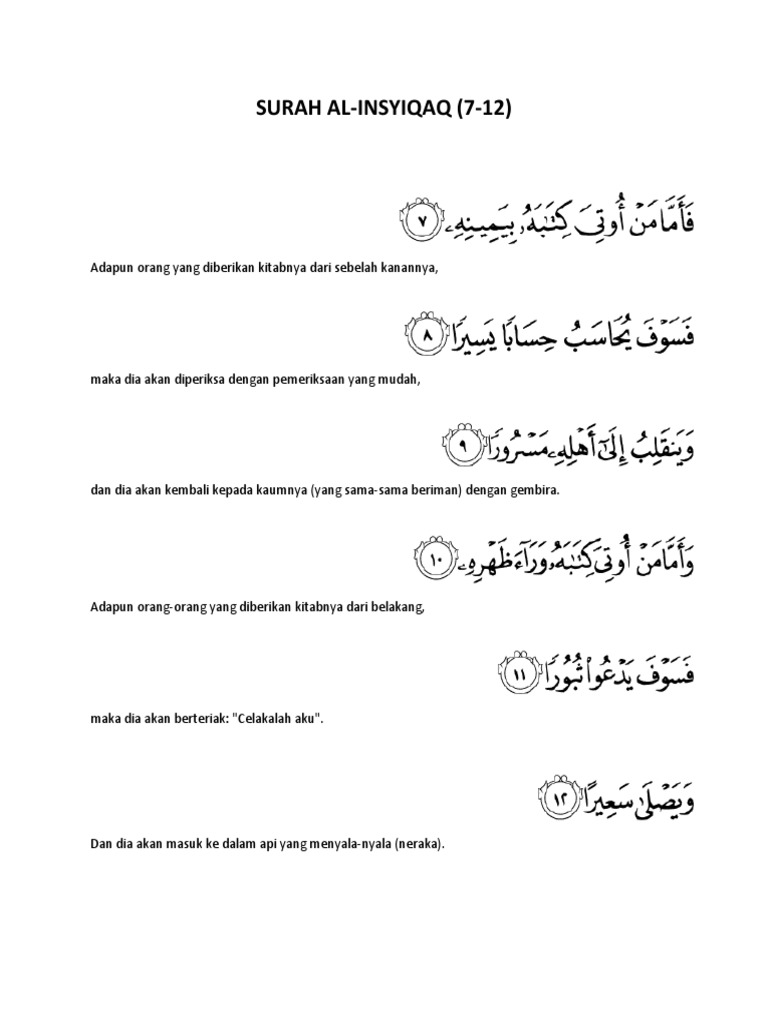 SURAH AL-INSYIQAQ (7-12)
فَأَمَّا مَنْ أُوتِىَ كِتَٰبَهُۥ بِيَمِينِهِۦ ٧
Adapun orang yang diberikan kitabnya dari sebelah kanannya,
فَسَوْفَ يُحَاسَبُ حِسَابًا يَسِيرًا ٨
maka dia akan diperiksa dengan pemeriksaan yang mudah,
وَيَنقَلِبُ إِلَىٰٓ أَهْلِهِۦ مَسْرُورًا ٩
dan dia akan kembali kepada kaumnya (yang sama-sama beriman) dengan gembira.
وَأَمَّا مَنْ أُوتِىَ كِتَٰبَهُۥ وَرَآءَ ظَهْرِهِۦ ١٠
Adapun orang-orang yang diberikan kitabnya dari belakang,
فَسَوْفَ يَدْعُوا۟ ثُبُورًا ١١
maka dia akan berteriak: "Celakalah aku".
وَيَصْلَىٰ سَعِيرًا ١٢
Dan dia akan masuk ke dalam api yang menyala-nyala (neraka).